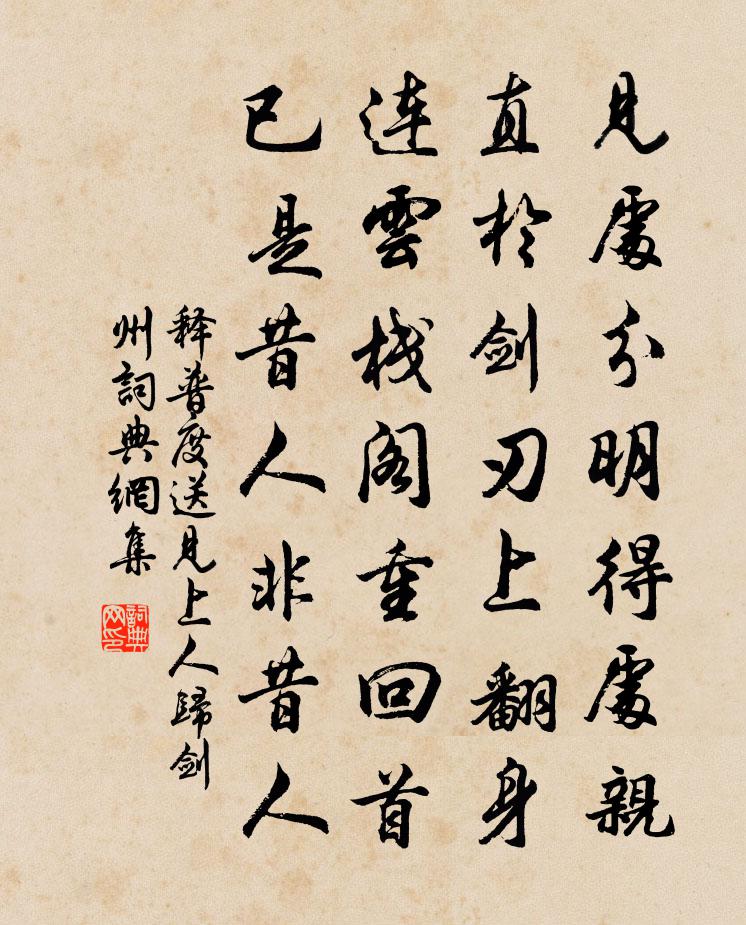 見處分明得處親
直於劍刃上翻身
連雲棧閣重回首
已是昔人非昔人
释普度送見上人歸劍
州詞典網集
詞典
网印